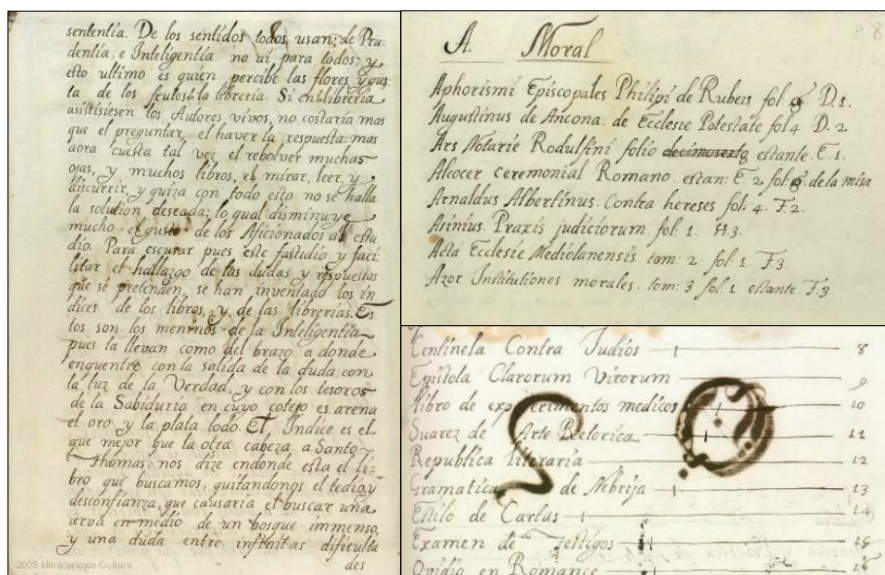 sententia. De los sentidos todos usan; de Pru
dentia, e Inteligentia no ai para todos; y
esto ultimo es quien percibe las flores, y gus
ta de los frutos de la libreria. Si en la libreria
asistiesen los Autores vivos, no costaria mas
que el preguntar, el haver la respuesta: mas
aora cuesta tal vez el rebolver muchas
ojas, y muchos libros, el mirar, leer, y
discurrir, y quiza con todo esto no se halla
la solution deseada; lo qual disminuye
mucho el gusto de los Aficionados al estu
dio. Para escusar pues este fastidio y faci
litar el hallazgo de las dudas y respuestas
que se pretenden, se han inventado los in
dices de los libros, y de las librerias. Es
tos son los meninos de la Inteligentia
pues la llevan como del brazo a donde
enquentre con la salida de la duda con
la luz de la Verdad, y con los tesoros
de la Sabiduria en cuyo cotejo es arena
el oro y la plata lodo. El Indice es el
que mejor que la otra cabeza a Santo
Thomas, nos dize endonde esta el li-
bro que buscamos, quitandonos el tedio, y
desconfianza, que causaria el buscar una
ierva en medio de un bosque immenso,
y una duda entre infinitas dificultu
des
2009 Ministerio de Cultura
A. Moral
Aphorismi Episcopales Philipi de Rubeis fol. 8. D.1.
Augustinus de Ancona: de Ecclesie Potestate fol 4 D.2
Ars Notarie Rodulfini folio decimosexto estante. E.1.
Alcocer Ceremonial Romano. estan: E.2 fol 8. de la misa
Arnaldus Albertinus. Contra hereses fol: 4. F.2.
Asinius. Praxis judiciorum. fol: 1. SS.3.
Acta Ecclesie Mediolanensis tom: 2 fol: 1 F.3.
Azor Institutiones morales. tom: 3 fol: 1 estante F.3
Centinela Contra Judios 8
Epistola Clarorum Virorum 9
libro de experimentos medicos 10
Suarez de Arte Retorica 11
Republica literaria 12
Gramatica de Nebrija 13
Estilo de Cartas 14
Examen de testigos 15
Ovidio en Romance 16